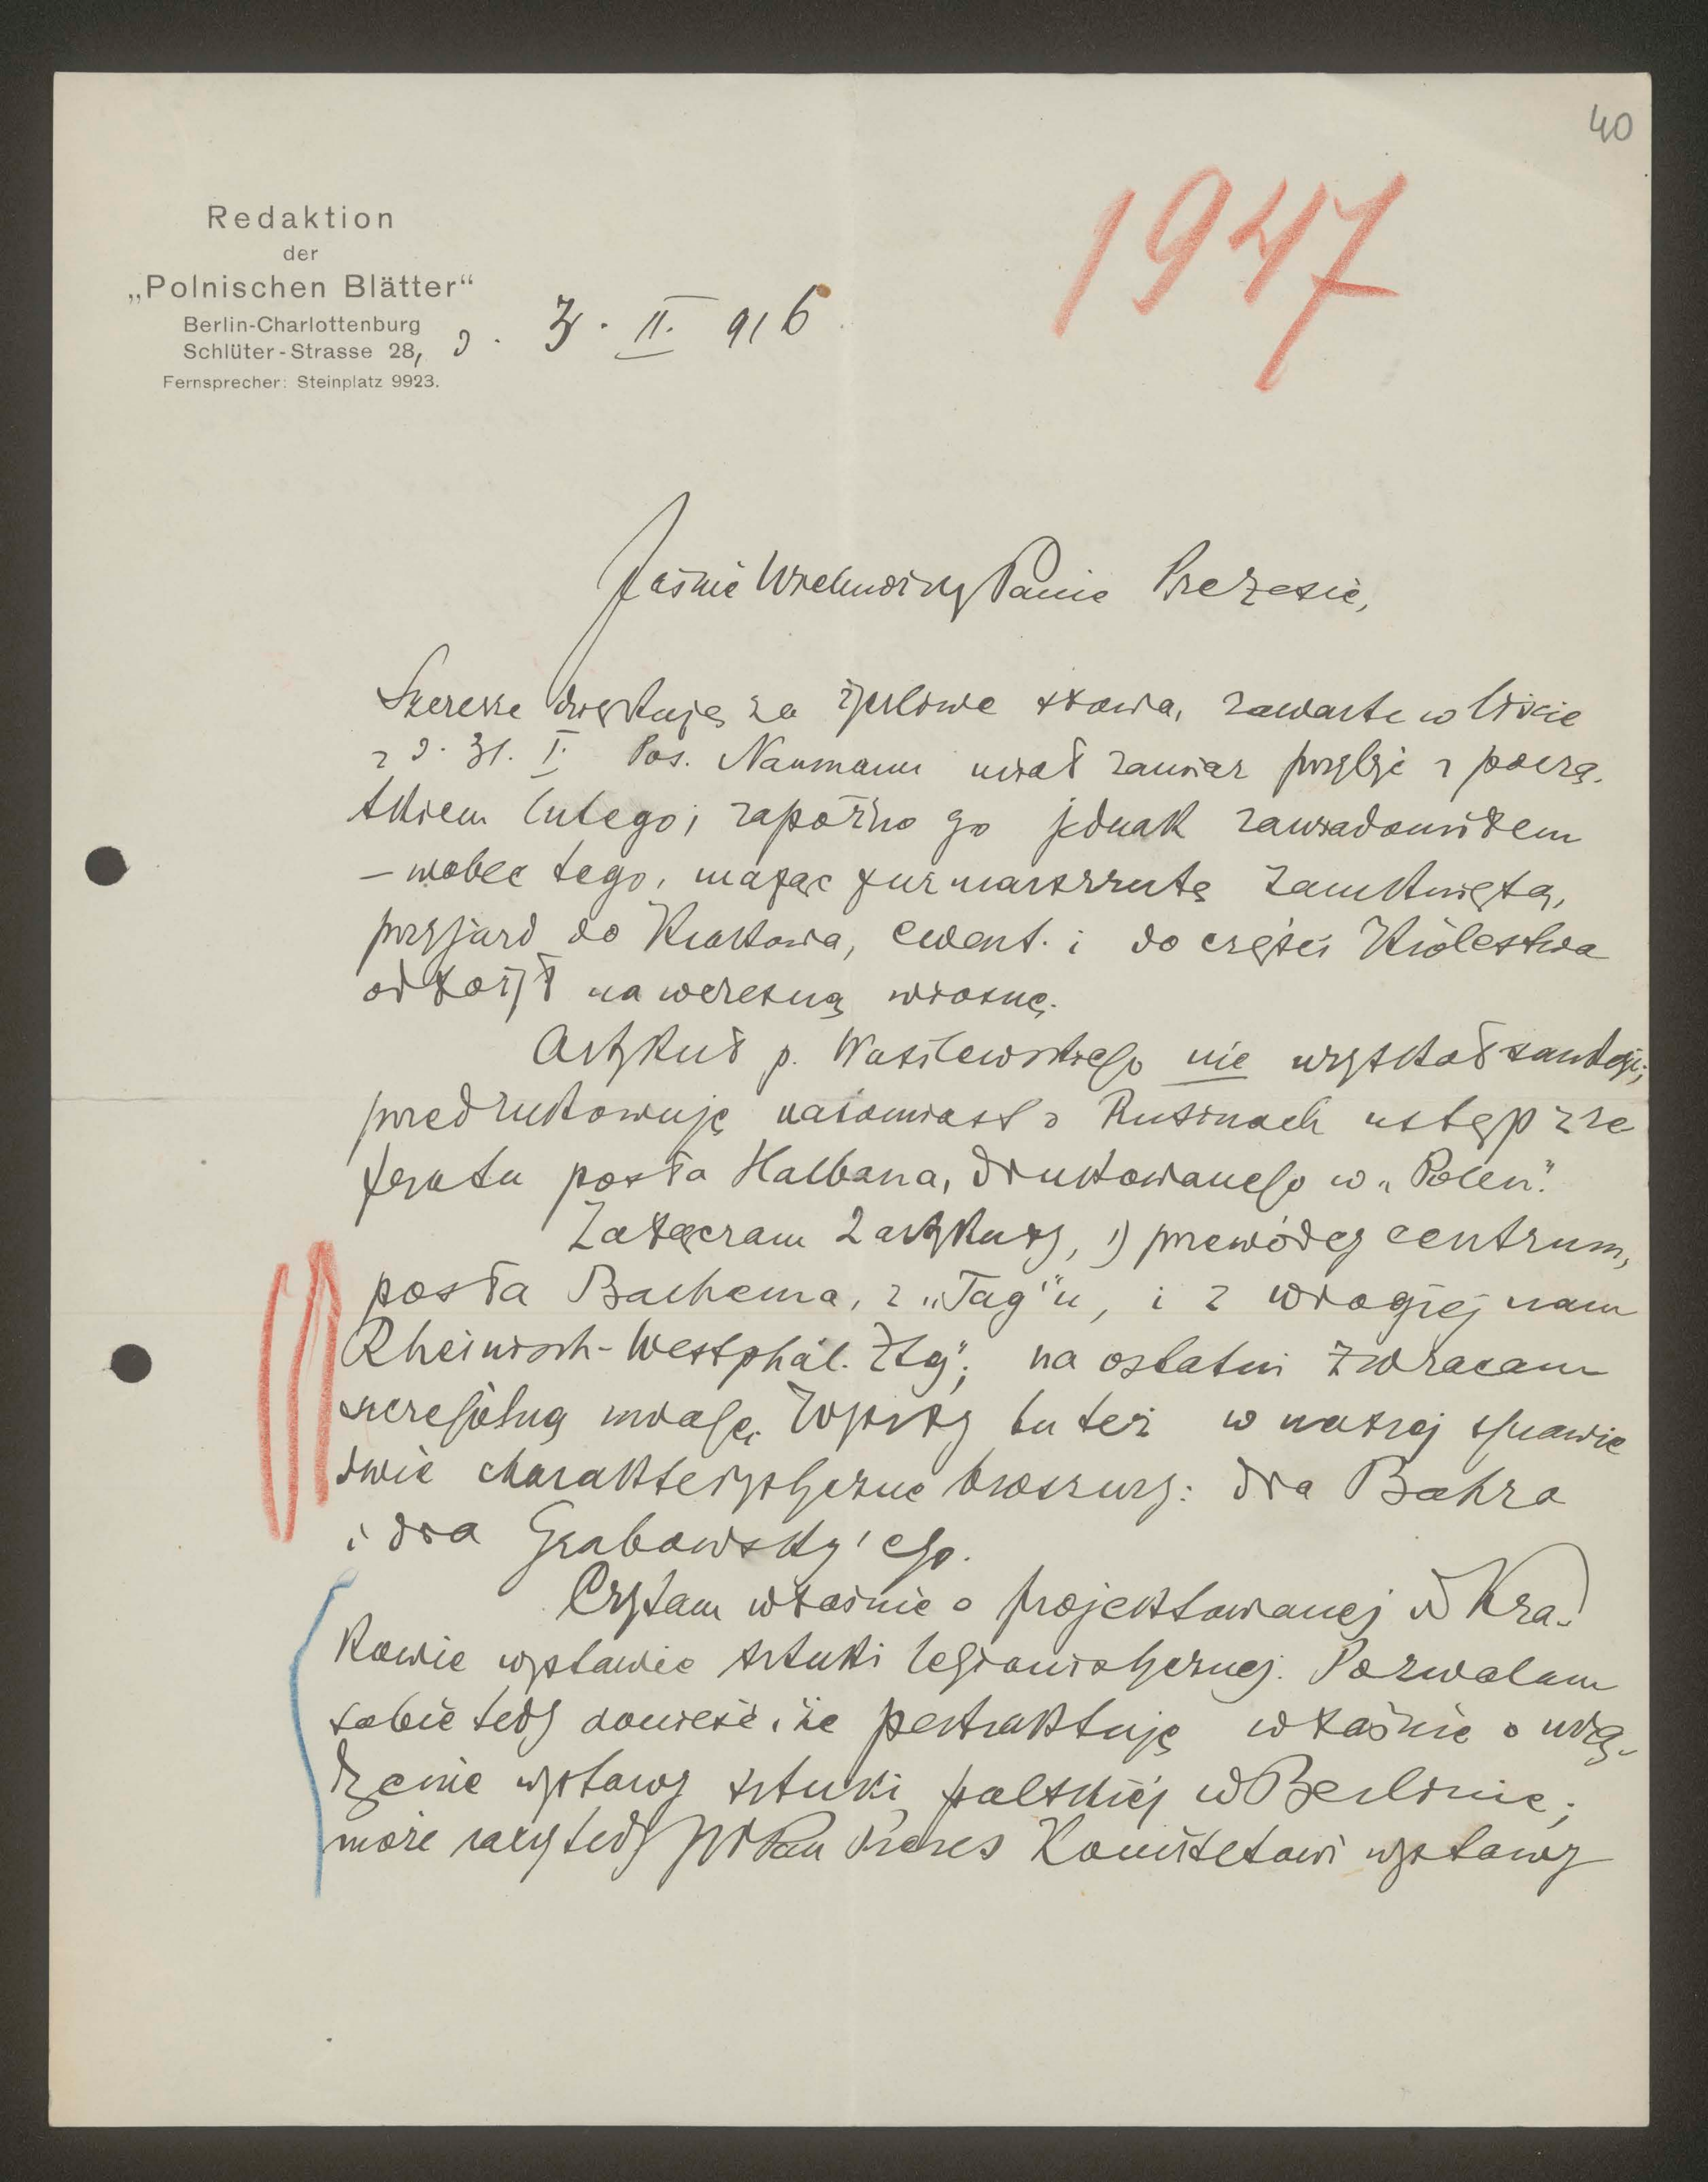 40
1947
Redaktion
der
„Polnischen Blätter“
Berlin-Charlottenburg
Schlüter-Strasse 28, d. 3. II. 916
Fernsprecher: Steinplatz 9923.
Jaśnie Wielmożny Panie Prezesie,
Szczerze dziękuję za życzliwe słowa, zawarte w liście
z d. 31. I. Pos. Naumann miał zamiar przybyć z począ-
tkiem lutego; zapóźno go jednak zawiadomiłem
– wobec tego, mając już marszrutę zamkniętą,
przyjazd do Krakowa, ewent. i do części Królestwa
odłożył na wczesną wiosnę.
Artykuł p. Wasilewskiego nie uzyskał sankcji;
przedrukowuję natomiast o Rusinach ustęp z re
feratu posła Halbana, drukowanego w „Polen“.
Załączam 2 artykuły, 1) przewódcy centrum,
posła Bachema, z „Tag'u“, i z wrogiej nam
Rheinisch-Westphäl. Ztg“; na ostatni zwracam
szczególną uwagę. Wyszły tu też w naszej sprawie
dwie charakterystyczne broszury: dra Bahra
i dra Grabowsky'ego.
Czytam właśnie o projektowanej w Kra-
kowie wystawie sztuki legionistycznej. Pozwalam
sobie tedy donieść, że pertraktuję właśnie o urzą-
dzenie wystawy sztuki polskiej w Berlinie;
może raczy tedy JW Pan Prezes Komitetowi wystawy